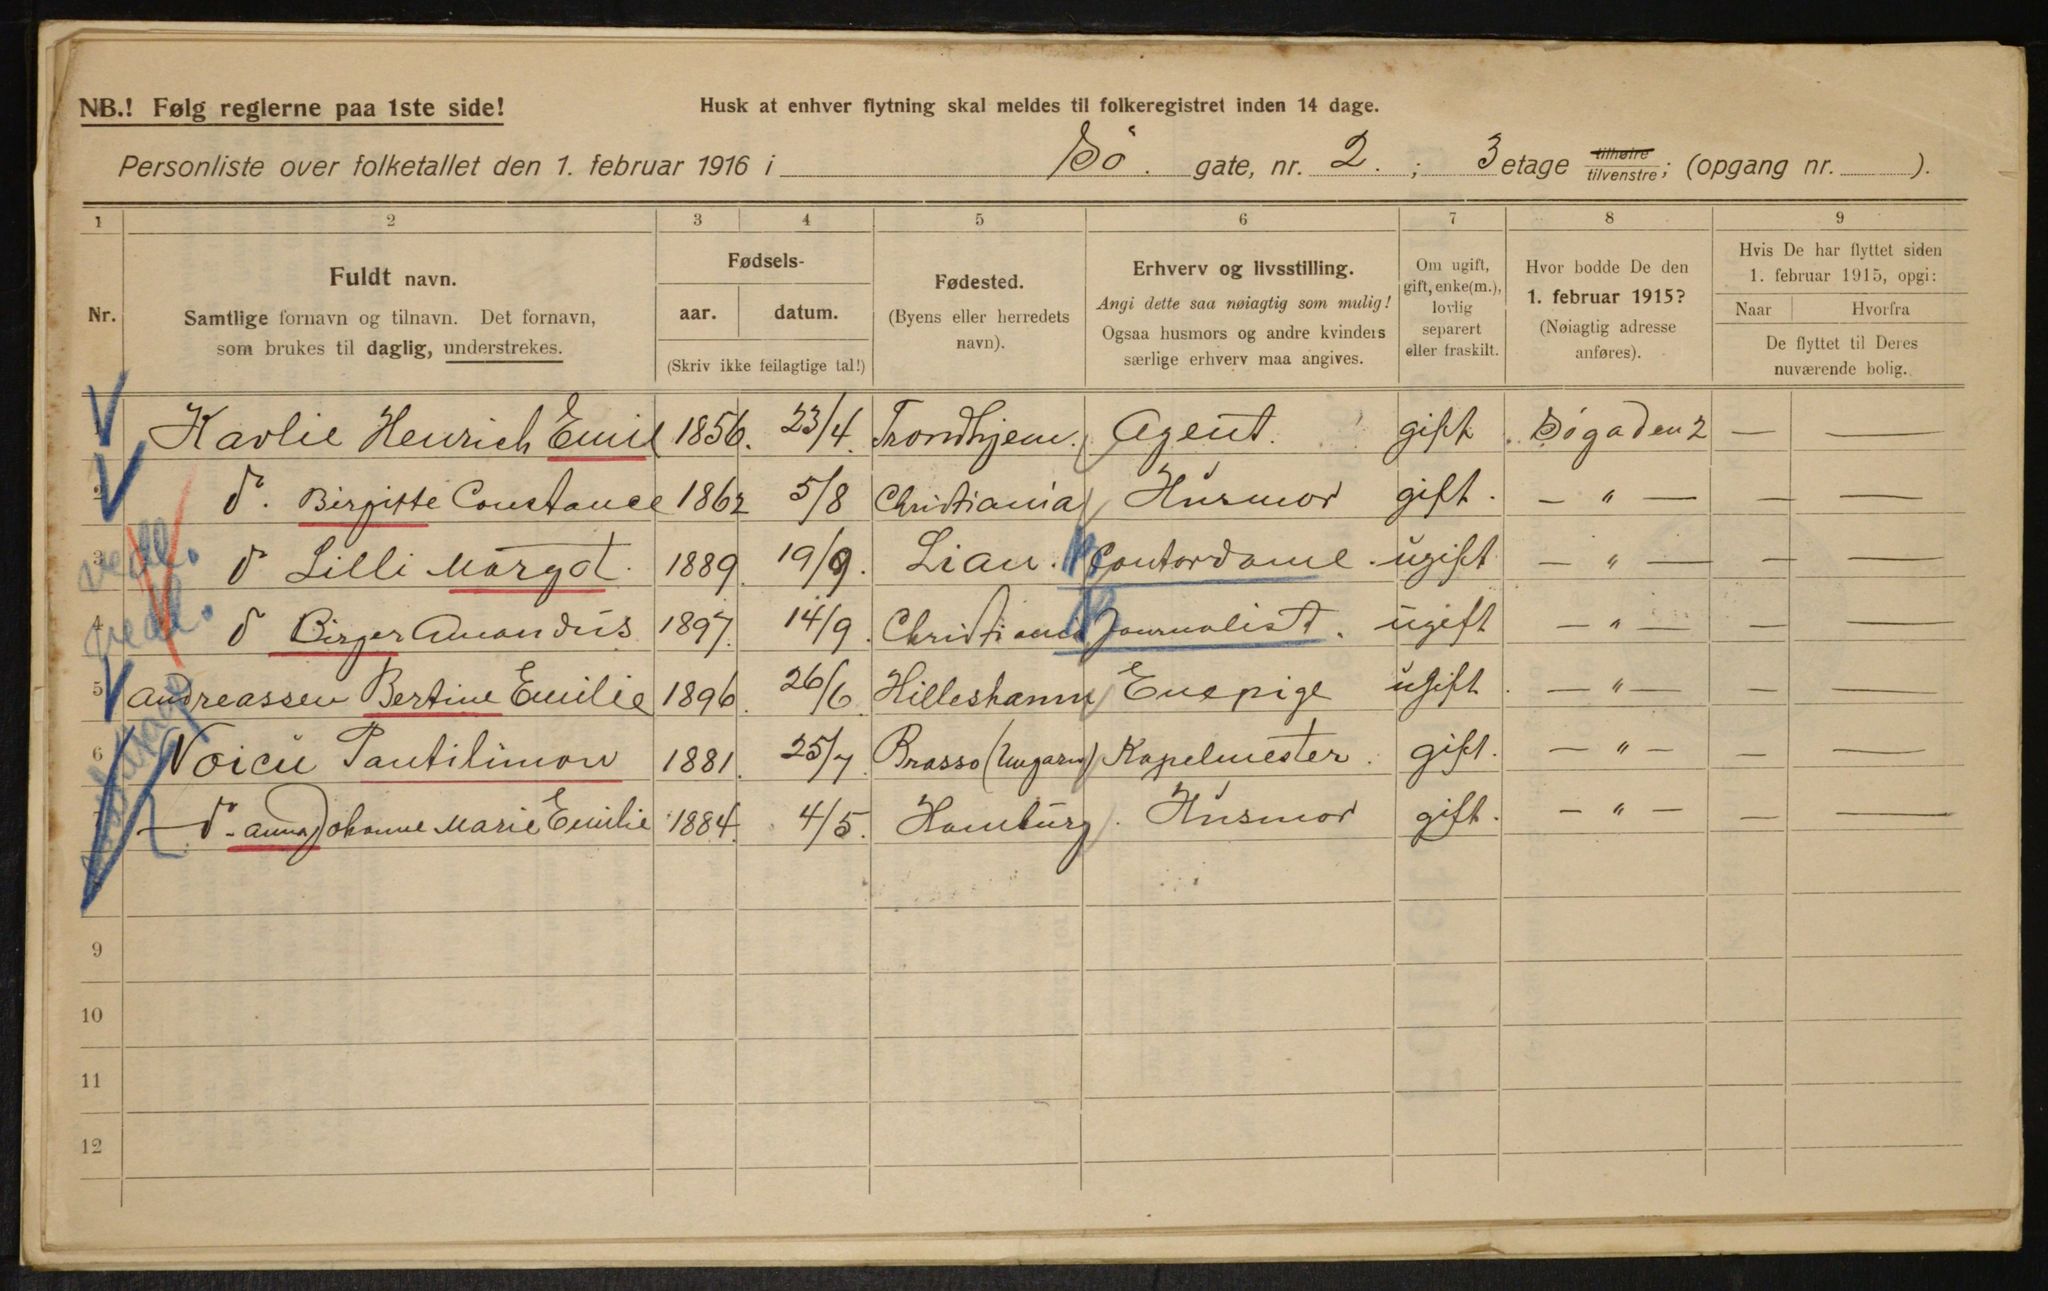 NB.! Følg reglerne paa 1ste side!
Husk at enhver flytning skal meldes til folkeregistret inden 14 dage.
Personliste over folketallet den 1. februar 1916 i Bö. gate, nr. 2. ; 3 etage tilhøire tilvenstre; (opgang nr. ).
1 2 3 4 5 6 7 8 9
Nr.
Fuldt navn.
Samtlige fornavn og tilnavn. Det fornavn,
som brukes til daglig, understrekes.
Fødsels-
aar. datum.
(Skriv ikke feilagtige tal!)
Fødested.
(Byens eller herredets
navn).
Erhverv og livsstilling.
Angi dette saa nøiagtig som mulig!
Ogsaa husmors og andre kvinders
særlige erhverv maa angives.
Om ugift,
gift, enke(m.),
lovlig
separert
eller fraskilt.
Hvor bodde De den
1. februar 1915?
(Nøiagtig adresse
anføres).
Hvis De har flyttet siden
1. februar 1915, opgi:
Naar Hvorfra
De flyttet til Deres
nuværende bolig.
Kavlie Henrich Emil 1856. 23/4. Trondhjem. Agent. gift Bögaden 2 — —
2 do. Birgitte Constance 1862 5/8 Christiania Husmor gift. — " — — —
3 do Lilli Margot. 1889. 19/9. Lian. Contordame. ugift — " — — —
4 do Birger Amandus 1897. 14/9. Christiania Journalist. ugift — " — — —
5 Andreassen Bertine Emilie 1896. 26/6. Hilleshamn Enepige ugift. — " — — —
6 Voicu Pantilimon 1881. 25/7. Brasso (Ungarn) Kapelmester. gift. — " — — —
— do. Anna Johanne Marie Emilie 1884. 4/5. Hamburg. Husmor gift. — " — — —
9
10
11
12